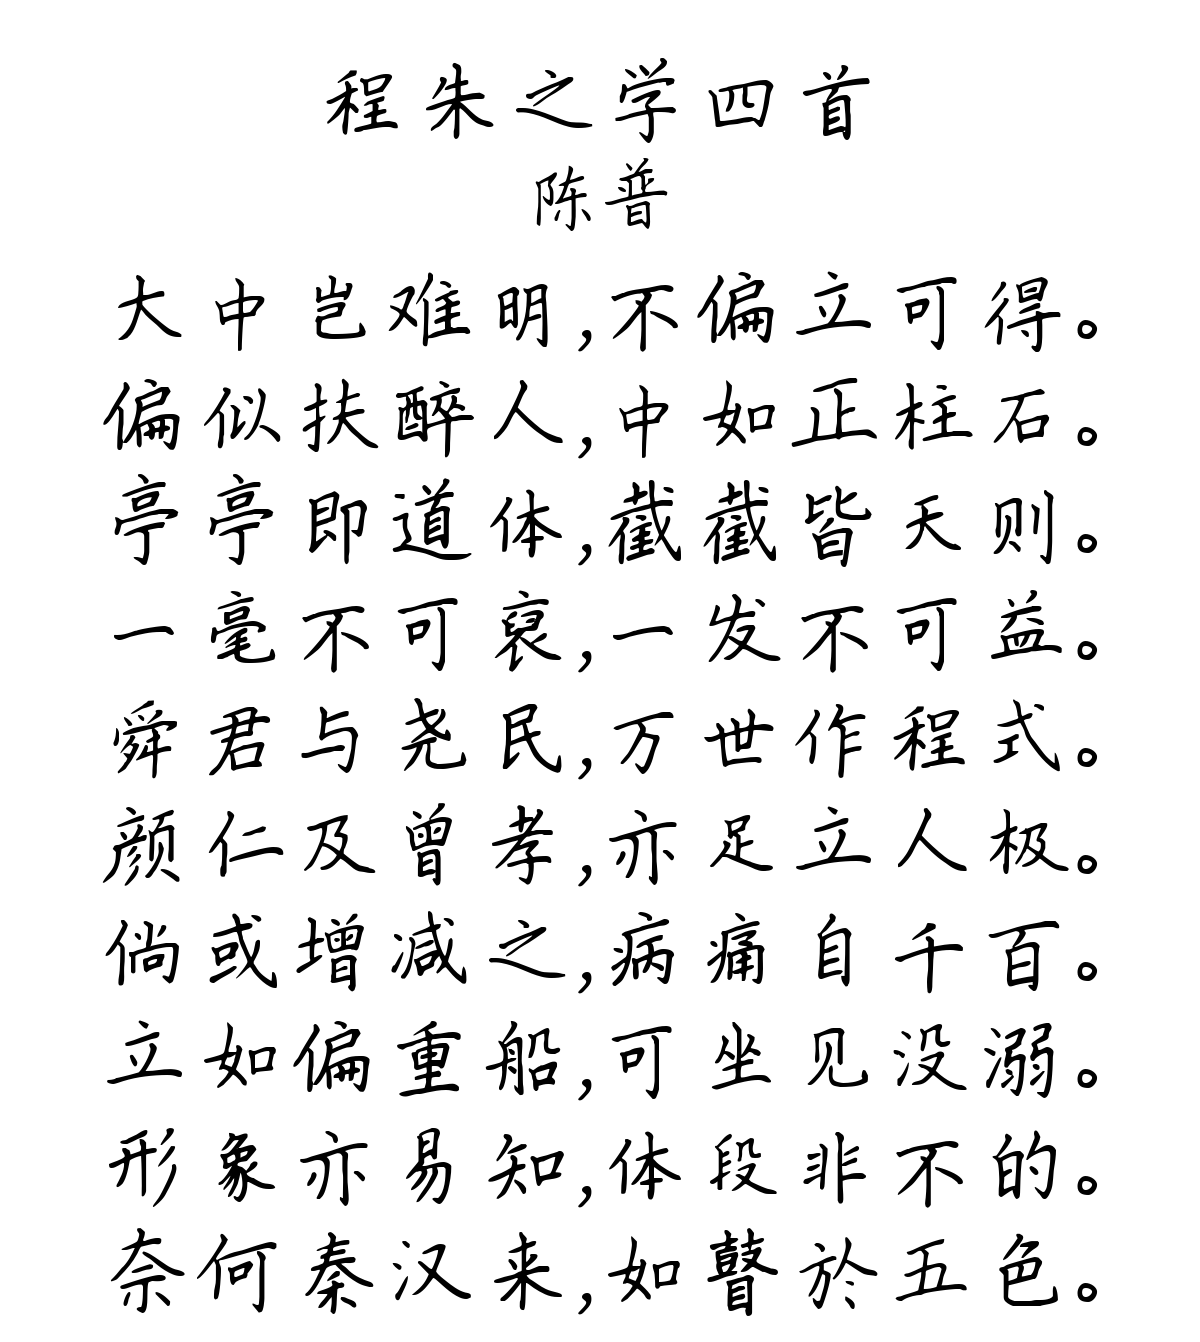 程朱之学四首
陈普
大中岂难明,不偏立可得。
偏似扶醉人,中如正柱石。
亭亭即道体,截截皆天则。
一毫不可裒,一发不可益。
舜君与尧民,万世作程式。
颜仁及曾孝,亦足立人极。
倘或增减之,病痛自千百。
立如偏重船,可坐见没溺。
形象亦易知,体段非不的。
奈何秦汉来,如瞽於五色。